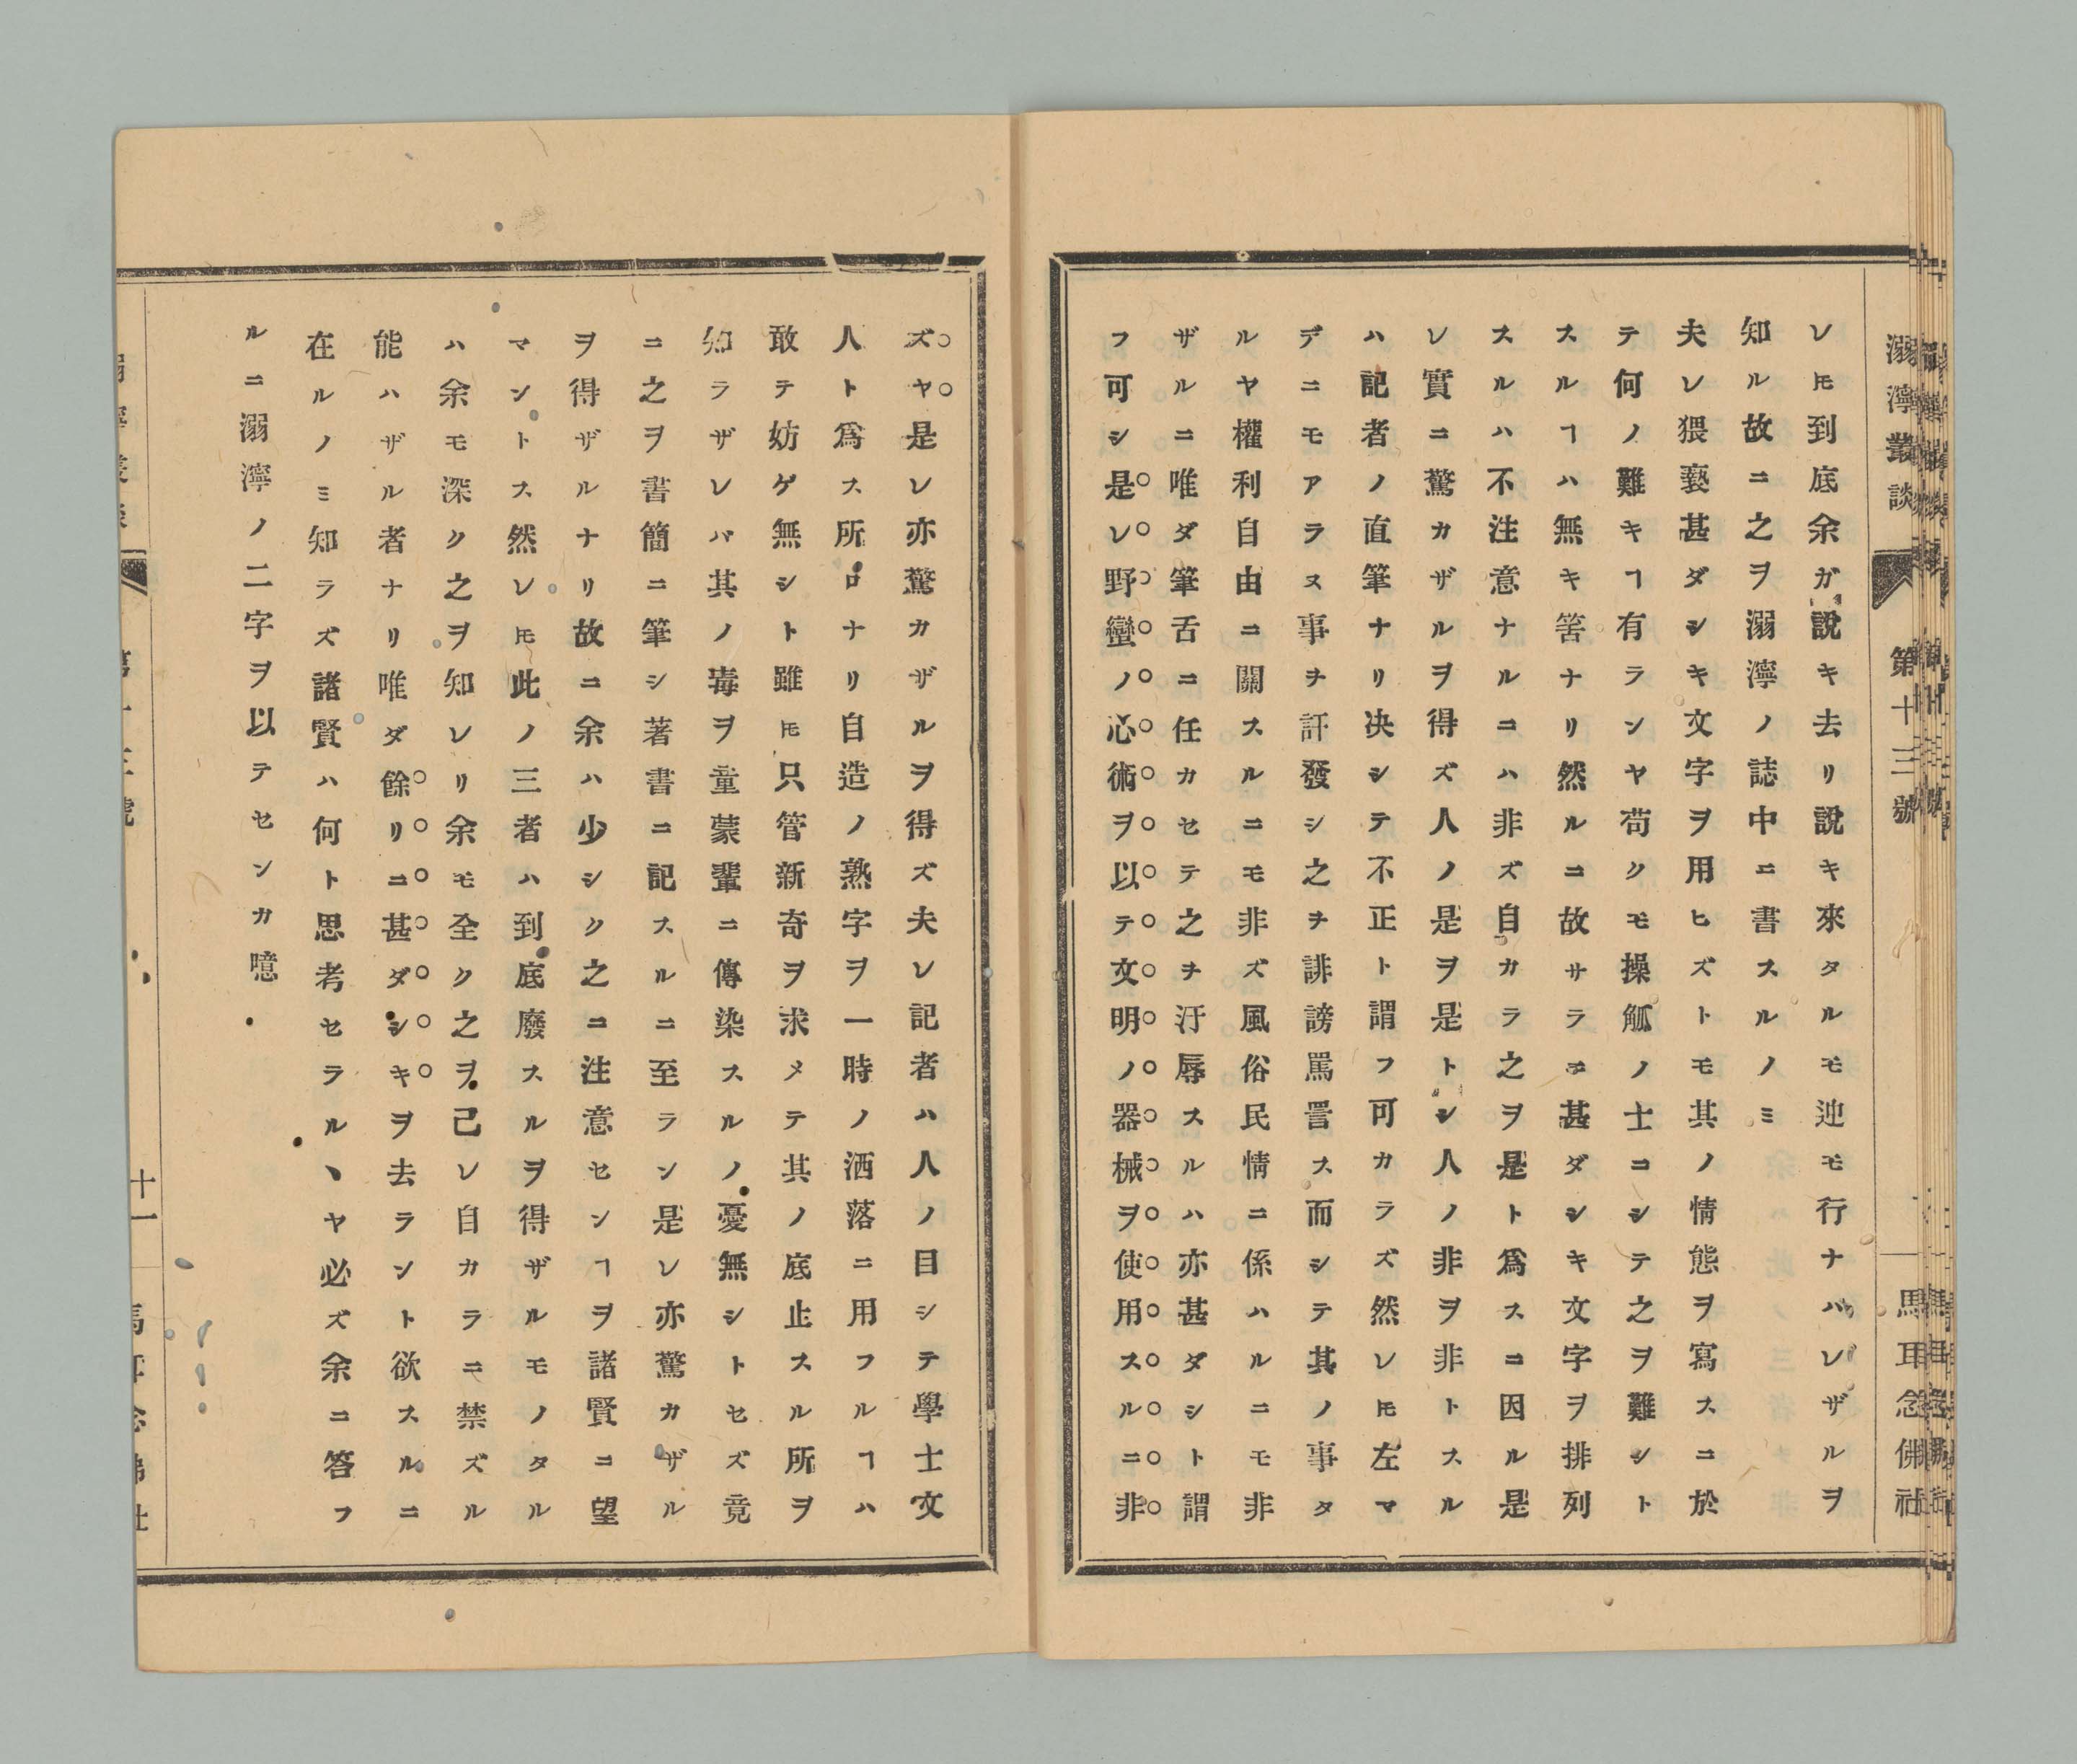 溺濘叢談 第十三號 馬耳念佛社
レ𪜈到底余ガ說キ去リ說キ來タルモ迚モ行ナハレザルヲ
知ル故ニ之ヲ溺濘ノ誌中ニ書スルノミ
夫レ猥褻甚ダシキ文字ヲ用ヒズトモ其ノ情態ヲ寫スニ於
テ何ノ難キヿ有ランヤ苟クモ操觚ノ士ニシテ之ヲ難シト
スルヿハ無キ筈ナリ然ルニ故サラニ甚ダシキ文字ヲ排列
スルハ不注意ナルニハ非ズ自カラ之ヲ是ト爲スニ因ル是
レ實ニ驚カザルヲ得ズ人ノ是ヲ是トシ人ノ非ヲ非トスル
ハ記者ノ直筆ナリ决シテ不正ト謂フ可カラズ然レ𪜈左マ
デニモアラヌ事ヲ訐發シ之ヲ誹謗罵詈ス而シテ其ノ事タ
ルヤ權利自由ニ關スルニモ非ズ風俗民情ニ係ハルニモ非
ザルニ唯ダ筆舌ニ任カセテ之ヲ汙辱スルハ亦甚ダシト謂
フ可シ是レ野蠻ノ心術ヲ以テ文明ノ器械ヲ使用スルニ非
ズヤ是レ亦驚カザルヲ得ズ夫レ記者ハ人ノ目シテ學士文
人ト爲ス所ロナリ自造ノ熟字ヲ一時ノ洒落ニ用フルヿハ
敢テ妨ゲ無シト雖𪜈只管新奇ヲ求メテ其ノ底止スル所ヲ
知ラザレバ其ノ毒ヲ童蒙輩ニ傳染スルノ憂無シトセズ竟
ニ之ヲ書簡ニ筆シ著書ニ記スルニ至ラン是レ亦驚カザル
ヲ得ザルナリ故ニ余ハ少シク之ニ注意センヿヲ諸賢ニ望
マントス然レ𪜈此ノ三者ハ到底廢スルヲ得ザルモノタル
ハ余モ深ク之ヲ知レリ余モ全ク之ヲ己レ自カラニ禁ズル
能ハザル者ナリ唯ダ餘リニ甚ダシキヲ去ラント欲スルニ
在ルノミ知ラズ諸賢ハ何ト思考セラルヽヤ必ズ余ニ答フ
ルニ溺濘ノ二字ヲ以テセンカ噫
十一